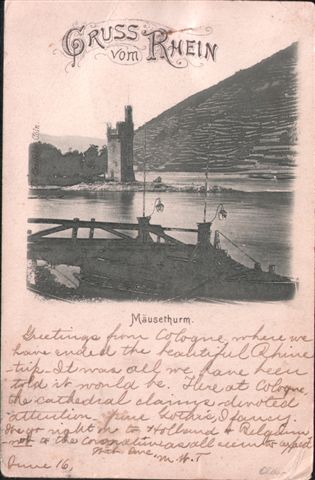 GRUSS
vom RHEIN
Mäusethurm.
Greetings from Cologne, where we
have ended the beautiful Rhine
trip. It was all we have been
told it would be. Here at Cologne,
the cathedral claims devoted
attention - pure Gothic, I fancy.
go right on to Holland & Belgium
not to the coronation as all seem to expect
With love, M.W.T
June 16,